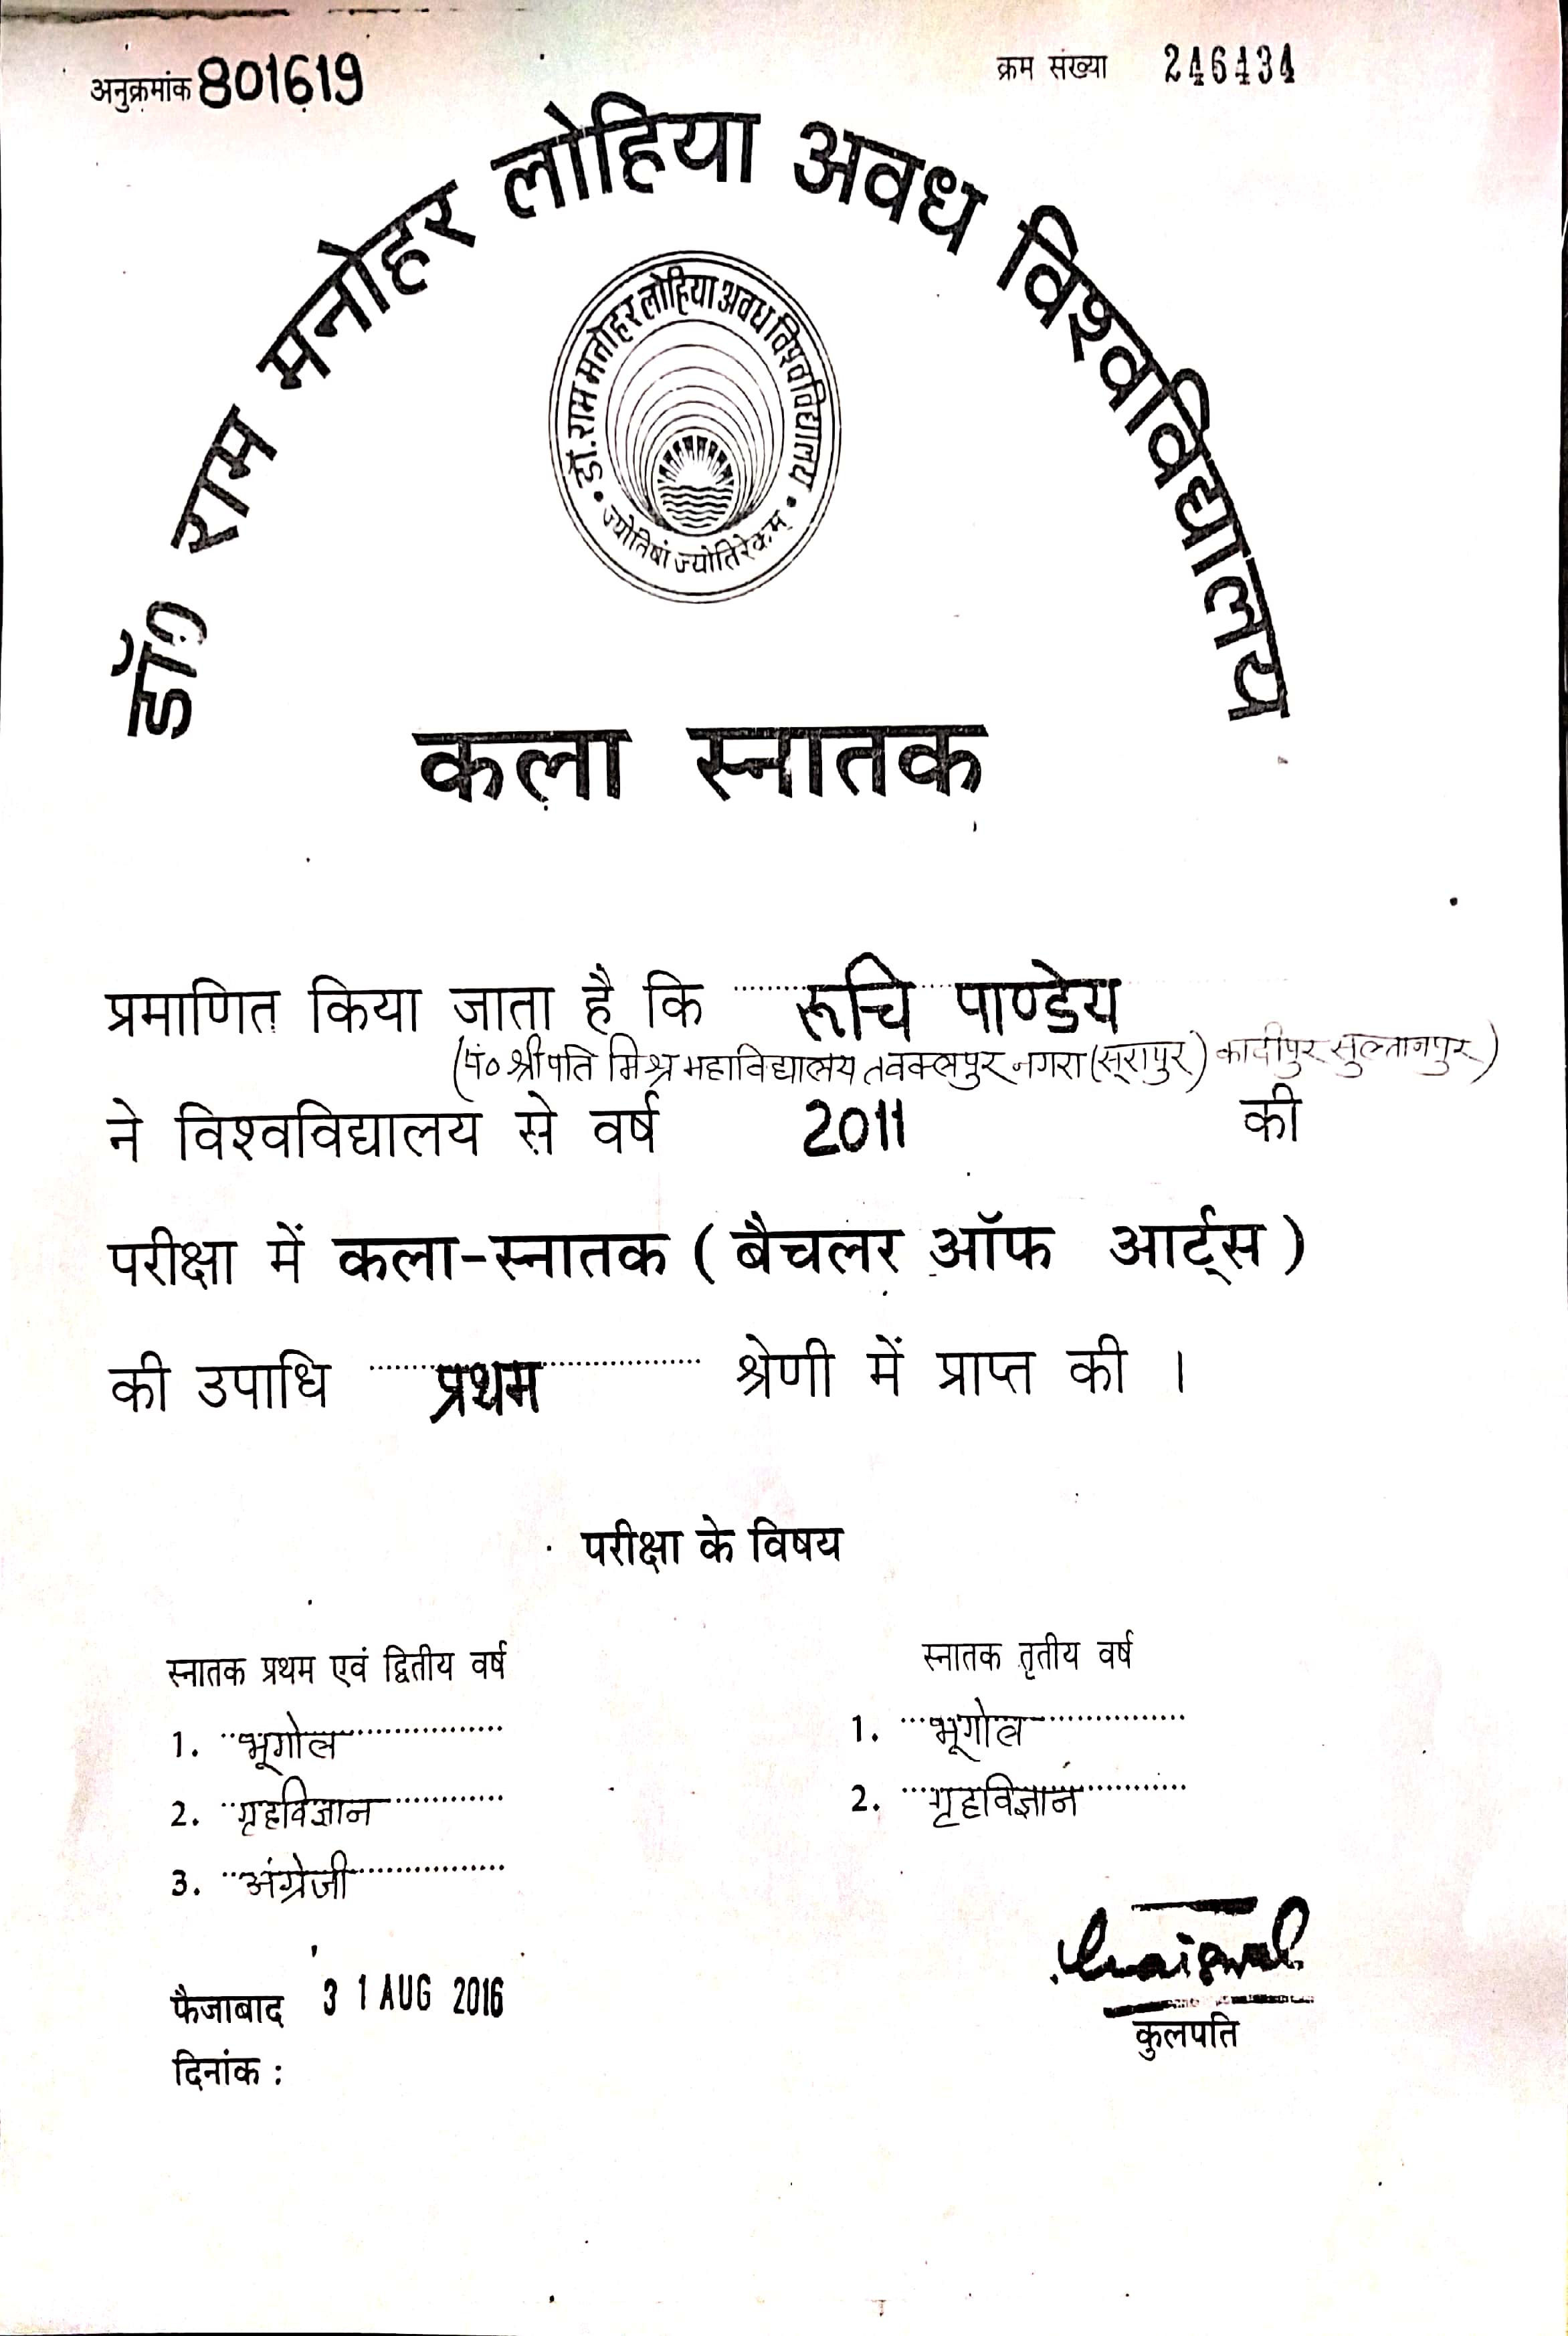 अनुक्रमांक 801619 क्रम संख्या 246434
डॉ० राम मनोहर लोहिया अवध विश्वविद्यालय
डॉ. राम मनोहर लोहिया अवध विश्वविद्यालय
ज्योतिषां ज्योतिरेकम्
कला स्नातक
प्रमाणित किया जाता है कि रूचि पाण्डेय
(पं० श्रीपति मिश्र महाविद्यालय तवक्लपुर नगरा (सूरापुर) कादीपुर सुल्तानपुर)
ने विश्वविद्यालय से वर्ष 2011 की
परीक्षा में कला-स्नातक ( बैचलर ऑफ आर्ट्स )
की उपाधि प्रथम श्रेणी में प्राप्त की ।
परीक्षा के विषय
स्नातक प्रथम एवं द्वितीय वर्ष
1. भूगोल
2. गृहविज्ञान
3. अंग्रेजी
स्नातक तृतीय वर्ष
1. भूगोल
2. गृहविज्ञान
फैजाबाद 31 AUG 2016
दिनांक :
कुलपति